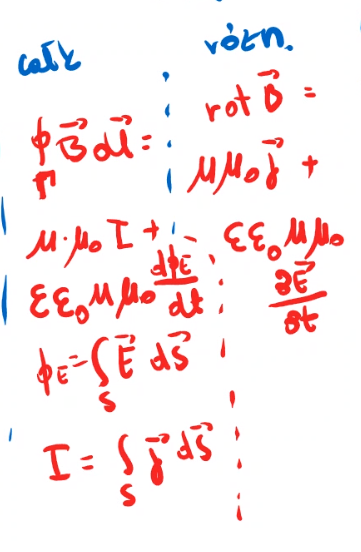 całk
różn.
∮_Γ B⃗ dl⃗ =
μ·μ₀ I +
εε₀μμ₀ dϕ_E/dt
ϕ_E = ∫_S E⃗ dS⃗
I = ∫_S j⃗ dS⃗
rot B⃗ =
μμ₀ j⃗ +
εε₀μμ₀
∂E⃗/∂t